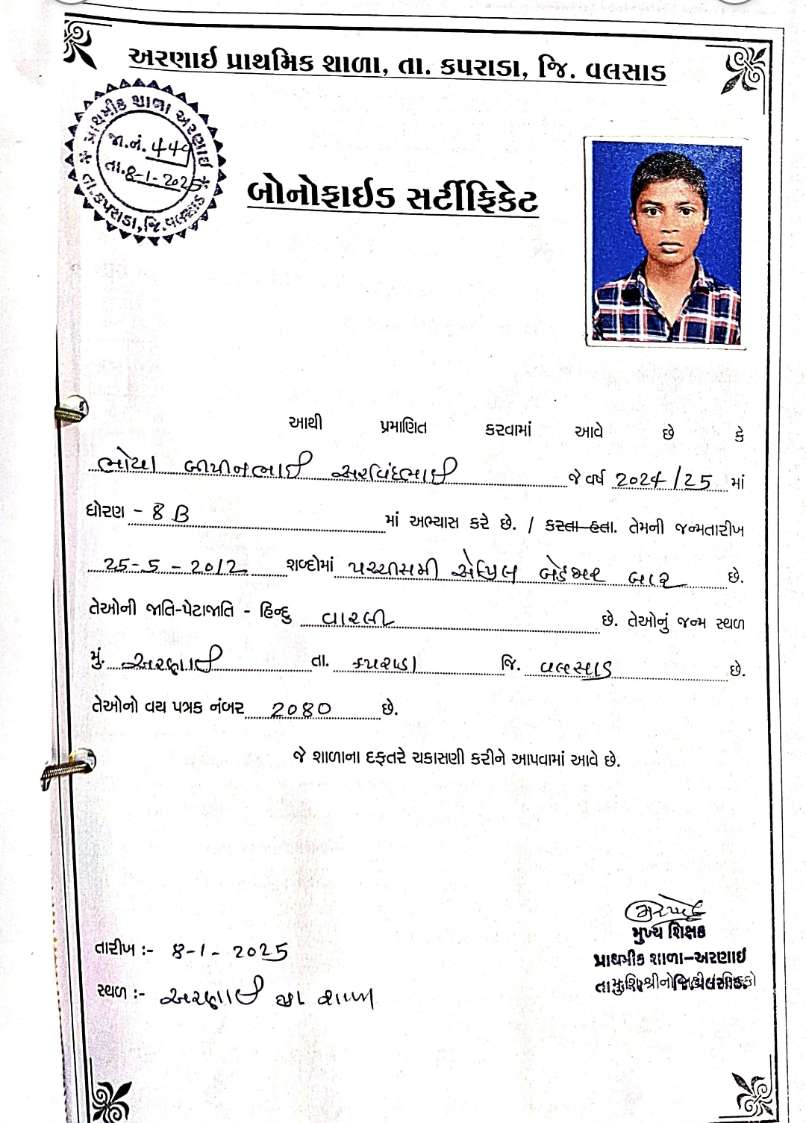 અરણાઇ પ્રાથમિક શાળા, તા. કપરાડા, જિ. વલસાડ
પ્રાથમીક શાળા અરણાઇ
જા.નં. 449
તા.8-1-2025
તા.કપરાડા,જિ.વલસાડ
બોનોફાઇડ સર્ટીફિકેટ
આથી પ્રમાણિત કરવામાં આવે છે કે
ભોયા બીપીનભાઈ અરવિંદભાઈ જે વર્ષ 2024/25 માં
ધોરણ - 8 B માં અભ્યાસ કરે છે. / કરતા હતા. તેમની જન્મતારીખ
25-5-2012 શબ્દોમાં પચ્ચીસમી એપ્રિલ બેહજાર બાર છે.
તેઓની જાતિ-પેટાજાતિ - હિન્દુ વારલી છે. તેઓનું જન્મ સ્થળ
મું. અરણાઈ તા. કપરાડા જિ. વલસાડ છે.
તેઓનો વય પત્રક નંબર 2080 છે.
જે શાળાના દફતરે ચકાસણી કરીને આપવામાં આવે છે.
મુખ્ય શિક્ષક
તારીખ :- 8-1-2025
પ્રાથમીક શાળા-અરણાઇ
સ્થળ :- અરણાઈ પ્રા શાળા